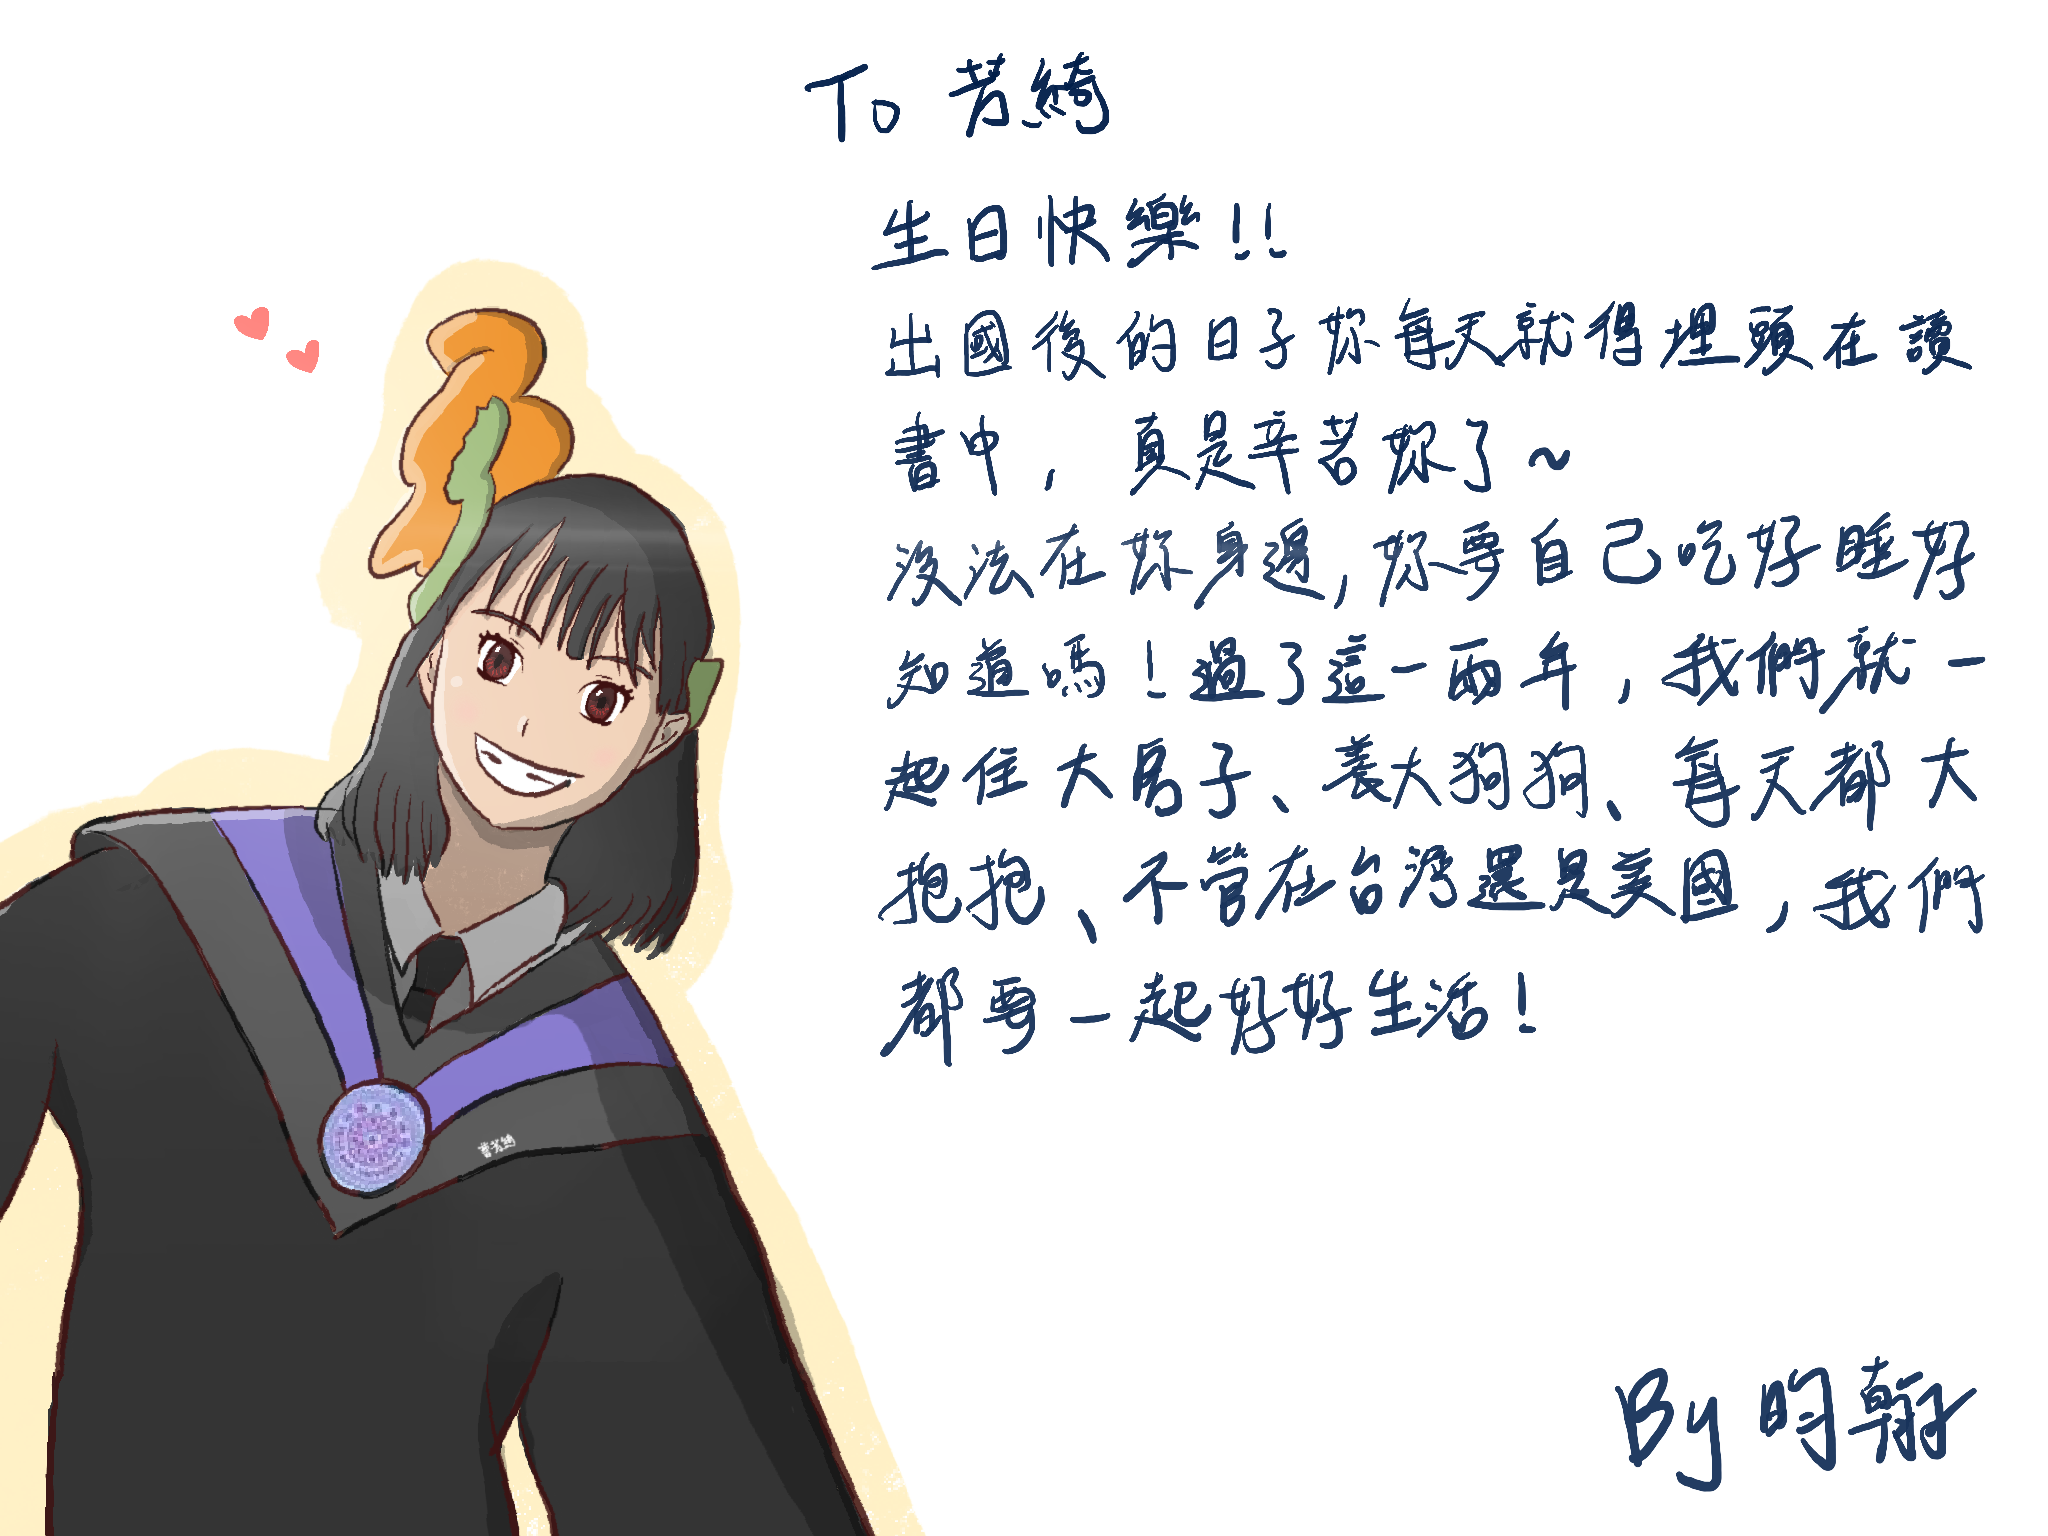 To 芳綺
生日快樂!!
出國後的日子妳每天就得埋頭在讀
書中，真是辛苦妳了~
沒法在妳身邊，妳要自己吃好睡好
知道嗎！過了這一兩年，我們就一
起住大房子、養大狗狗、每天都大
抱抱、不管在台灣還是美國，我們
都要一起好好生活！
曹芳綺
By 昀翰